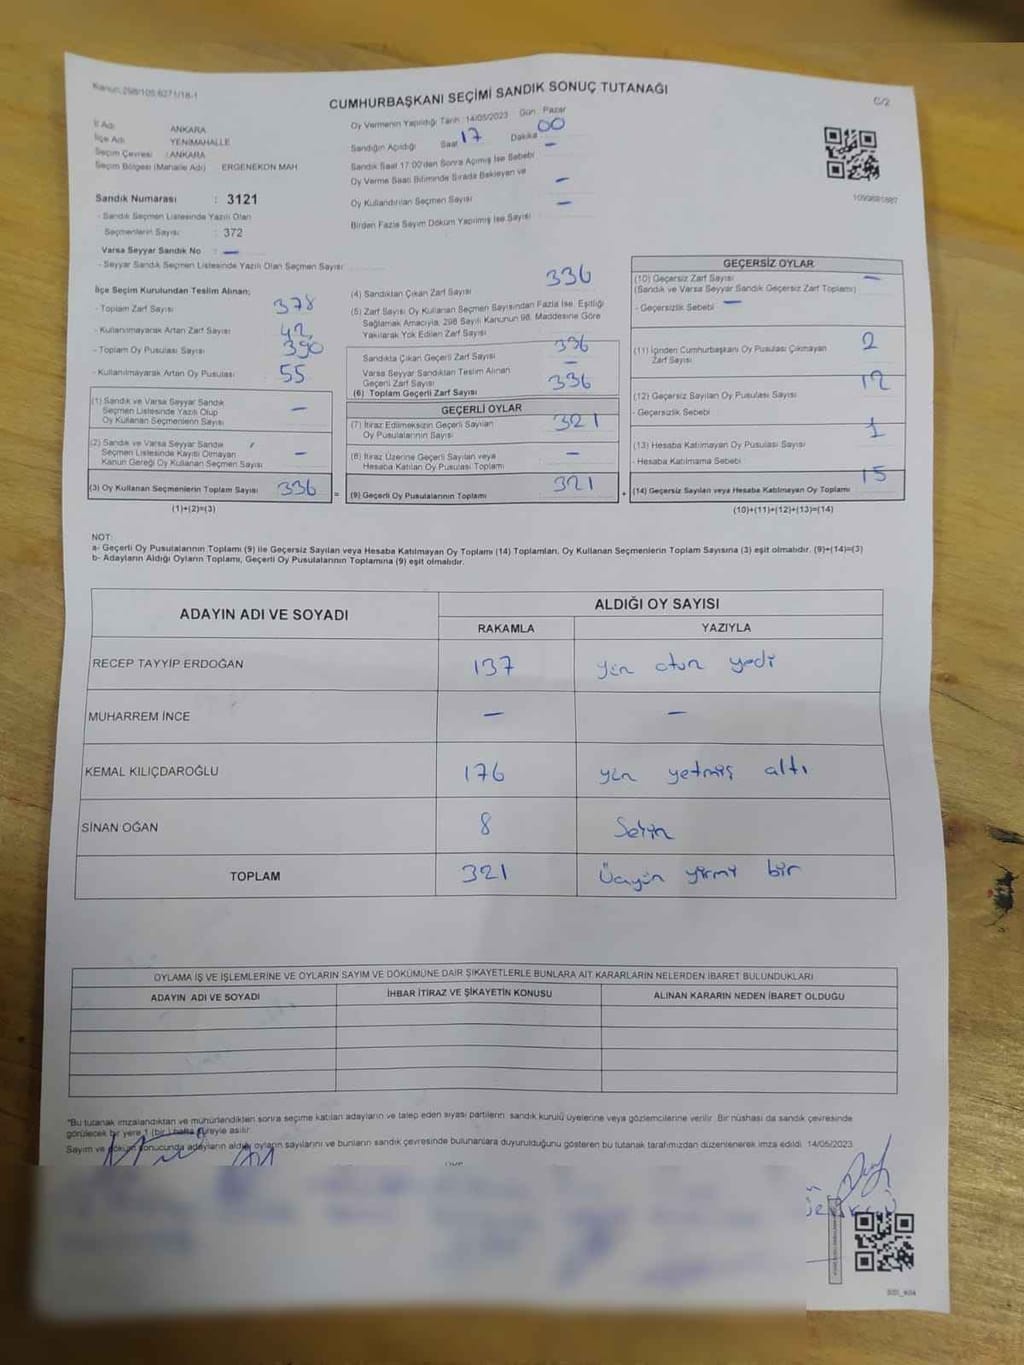 Kanun:298/105,6271/18-1
CUMHURBAŞKANI SEÇİMİ SANDIK SONUÇ TUTANAĞI
C/2
İl Adı ANKARA
İlçe Adı YENİMAHALLE
Seçim Çevresi : ANKARA
Seçim Bölgesi (Mahalle Adı) ERGENEKON MAH
Sandık Numarası : 3121
- Sandık Seçmen Listesinde Yazılı Olan
Seçmenlerin Sayısı : 372
Varsa Seyyar Sandık No : —
- Seyyar Sandık Seçmen Listesinde Yazılı Olan Seçmen Sayısı
Oy Vermenin Yapıldığı Tarih :14/05/2023 Gün : Pazar
Sandığın Açıldığı Saat 17 Dakika 00
Sandık Saat 17:00'den Sonra Açılmış İse Sebebi —
Oy Verme Saati Bitiminde Sırada Bekleyen ve
Oy Kullandırılan Seçmen Sayısı —
Birden Fazla Sayım Döküm Yapılmış İse Sayısı —
1099681887
İlçe Seçim Kurulundan Teslim Alınan;
- Toplam Zarf Sayısı 378
- Kullanılmayarak Artan Zarf Sayısı 42
- Toplam Oy Pusulası Sayısı 390
- Kullanılmayarak Artan Oy Pusulası 55
(1) Sandık ve Varsa Seyyar Sandık
Seçmen Listesinde Yazılı Olup
Oy Kullanan Seçmenlerin Sayısı —
(2) Sandık ve Varsa Seyyar Sandık
Seçmen Listesinde Kaydı Olmayan
Kanun Gereği Oy Kullanan Seçmen Sayısı —
(3) Oy Kullanan Seçmenlerin Toplam Sayısı 336 =
(1)+(2)=(3)
(4) Sandıktan Çıkan Zarf Sayısı 336
(5) Zarf Sayısı Oy Kullanan Seçmen Sayısından Fazla İse, Eşitliği
Sağlamak Amacıyla, 298 Sayılı Kanunun 98. Maddesine Göre
Yakılarak Yok Edilen Zarf Sayısı
Sandıkta Çıkan Geçerli Zarf Sayısı 336
Varsa Seyyar Sandıktan Teslim Alınan
Geçerli Zarf Sayısı —
(6) Toplam Geçerli Zarf Sayısı 336
GEÇERLİ OYLAR
(7) İtiraz Edilmeksizin Geçerli Sayılan
Oy Pusulalarının Sayısı 321
(8) İtiraz Üzerine Geçerli Sayılan veya
Hesaba Katılan Oy Pusulası Toplamı —
(9) Geçerli Oy Pusulalarının Toplamı 321 +
GEÇERSİZ OYLAR
(10) Geçersiz Zarf Sayısı —
(Sandık ve Varsa Seyyar Sandık Geçersiz Zarf Toplamı)
- Geçersizlik Sebebi —
(11) İçinden Cumhurbaşkanı Oy Pusulası Çıkmayan
Zarf Sayısı 2
(12) Geçersiz Sayılan Oy Pusulası Sayısı 12
- Geçersizlik Sebebi
(13) Hesaba Katılmayan Oy Pusulası Sayısı 1
- Hesaba Katılmama Sebebi
(14) Geçersiz Sayılan veya Hesaba Katılmayan Oy Toplamı 15
(10)+(11)+(12)+(13)=(14)
NOT:
a- Geçerli Oy Pusulalarının Toplamı (9) ile Geçersiz Sayılan veya Hesaba Katılmayan Oy Toplamı (14) Toplamları, Oy Kullanan Seçmenlerin Toplam Sayısına (3) eşit olmalıdır. (9)+(14)=(3)
b- Adayların Aldığı Oyların Toplamı, Geçerli Oy Pusulalarının Toplamına (9) eşit olmalıdır.
ADAYIN ADI VE SOYADI ALDIĞI OY SAYISI
RAKAMLA YAZIYLA
RECEP TAYYİP ERDOĞAN 137 yüz otuz yedi
MUHARREM İNCE — —
KEMAL KILIÇDAROĞLU 176 yüz yetmiş altı
SİNAN OĞAN 8 Sekiz
TOPLAM 321 Üçyüz yirmi bir
OYLAMA İŞ VE İŞLEMLERİNE VE OYLARIN SAYIM VE DÖKÜMÜNE DAİR ŞİKAYETLERLE BUNLARA AİT KARARLARIN NELERDEN İBARET BULUNDUKLARI
ADAYIN ADI VE SOYADI İHBAR İTİRAZ VE ŞİKAYETİN KONUSU ALINAN KARARIN NEDEN İBARET OLDUĞU
*Bu tutanak imzalandıktan ve mühürlendikten sonra seçime katılan adayların ve talep eden siyasi partilerin sandık kurulu üyelerine veya gözlemcilerine verilir. Bir nüshası da sandık çevresinde
görülecek bir yere 1 (bir) hafta süreyle asılır.
Sayım ve döküm sonucunda adayların aldığı oyların sayılarını ve bunların sandık çevresinde bulunanlara duyurulduğunu gösteren bu tutanak tarafımızdan düzenlenerek imza edildi. 14/05/2023